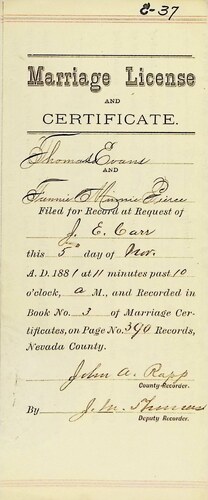 E-37
Marriage License
AND
CERTIFICATE.
Thomas Evans
AND
Fannie Minnie Pierce
Filed for Record at Request of
J. E. Carr
this 5th day of Nov.
A. D. 1881 at 11 minutes past 10
o'clock, a M., and Recorded in
Book No. 3 of Marriage Cer-
tificates, on Page No. 390 Records,
Nevada County.
John A. Rapp
County Recorder.
By J. M.
Deputy Recorder.